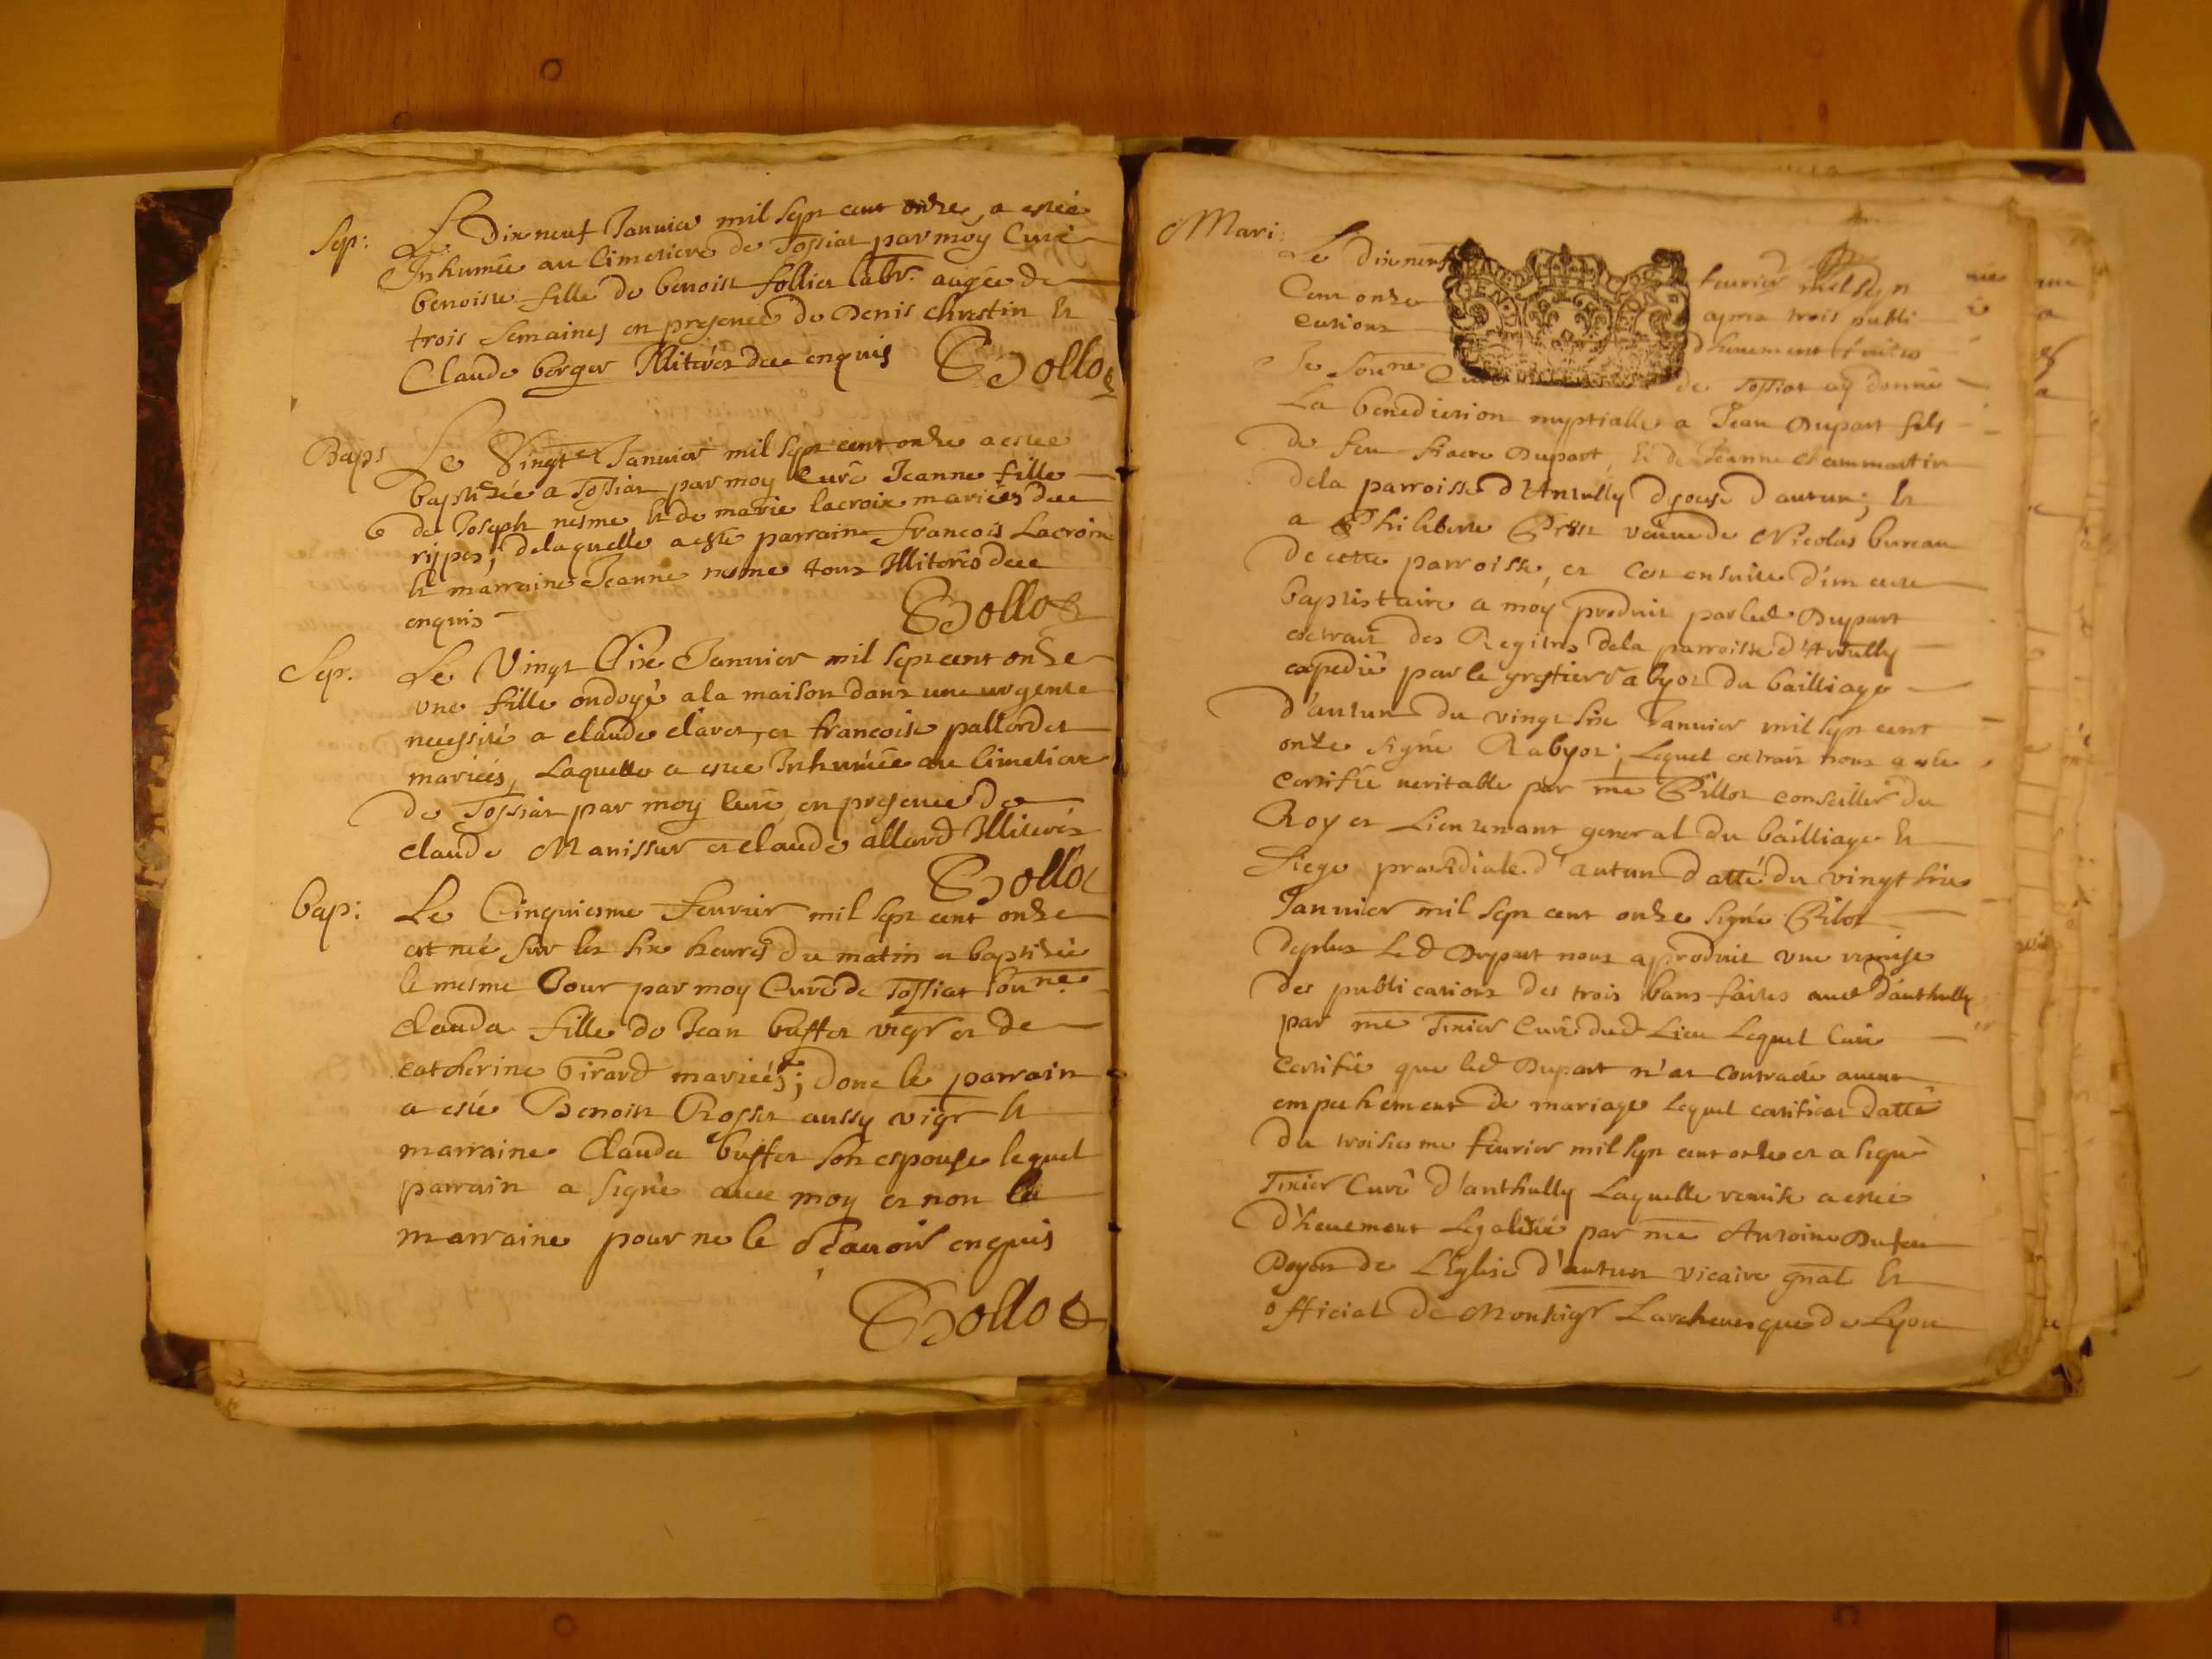 Sep: Le Dix neuf Januier mil sept cent onze, a estée
Inhumée au Cimetiere de Tossiat par moy Curé
benoiste fille de benoist follier labr. aagée de
trois semaines en presence de Denis chrestin et
Claude berger Illiterés dee enquis Bollot
Bapt Le Vingte Januier mil sept cent onze a estee
baptisée a Tossiat par moy Curé Jeanne fille
de Joseph nesme et de marie lacroix mariés due
delaquelle a esté parrain francois Lacroix
et marraine Jeanne nesme tous Illiterés dee
enquis Bollot
Sep. Le Vingt Six Januier mil sept cent onze
vne fille ondoyé a la maison dans une urgente
necessité a claude clavet, et francoise pallordet
mariés, Laquelle a estee Inhumée au Cimetiere
de Tossiat par moy Curé en presence de
claude Manissier et claude allard Illiterés
Bollot
bap: Le Cinquiesme feurier mil sept cent onze
est née sur les six heures du matin et baptisée
le mesme Jour par moy Curé de Tossiat soune
Clauda fille de Jean buffet vigr et de
catherine Girard mariés; dont le parrain
a esté Benoist Rosset aussy vigr et
marraine Clauda buffet son espouse lequel
parrain a signé auec moy et non la
marraine pour ne le sçauoir enquis
Bollot
Mari:
Le dix neuf feurier mil sept
Cent onze apres trois publi
cations dheuement faites
Je Soune Curé de Tossiat ay donné
La benediction nuptialle a Jean Dupart fils
de feu fiacre Dupart, et de Jeanne chammartin
dela parroisse d'Antully dyocese d'autun; et
a Philiberte veuue de Nicolas bureau
de cette parroisse, et ce ensuite d'un acte
baptistaire a moy produit par led Dupart
extrait des Registres dela parroisse d'Antully
expedié par le greffier rabyot du bailliage
d'autun du vingt six Januier mil sept cent
onze signé Rabyot; Lequel extrait nous a esté
certifié ueritable par me Pillot conseiller du
Roy et Lieutenant general du bailliage et
siege praesidiale d'autun datté du vingt six
Januier mil sept cent onze signé Pilot
deplus Led Dupart nous a produit vne remise
des publications des trois bans faites aud d'anthully
par me Tixier Curé dud Lieu Lequel Curé
certifie que led Dupart n'at contracté aucun
empechement de mariage lequel certificat datté
du troisiesme feurier mil sept cent onze et a signé
Tixier Curé d'anthully Laquelle remise a esté
d'heuement Legalisée par me Antoine Dufeu
Doyen de L'Eglise d'autun vicaire gnal et
official de Monseigr Larcheuesque de Lyon